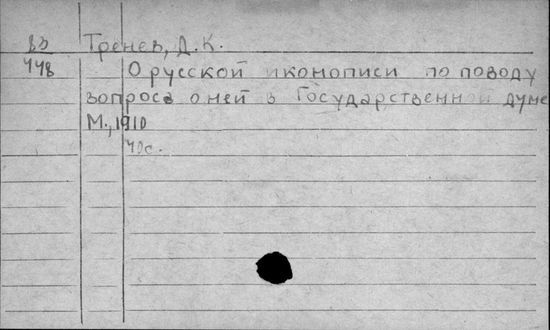 83 Тренев, Д.К.
448 О русской иконописи по поводу
вопроса о ней в Государственной думе
М., 1910
40с.